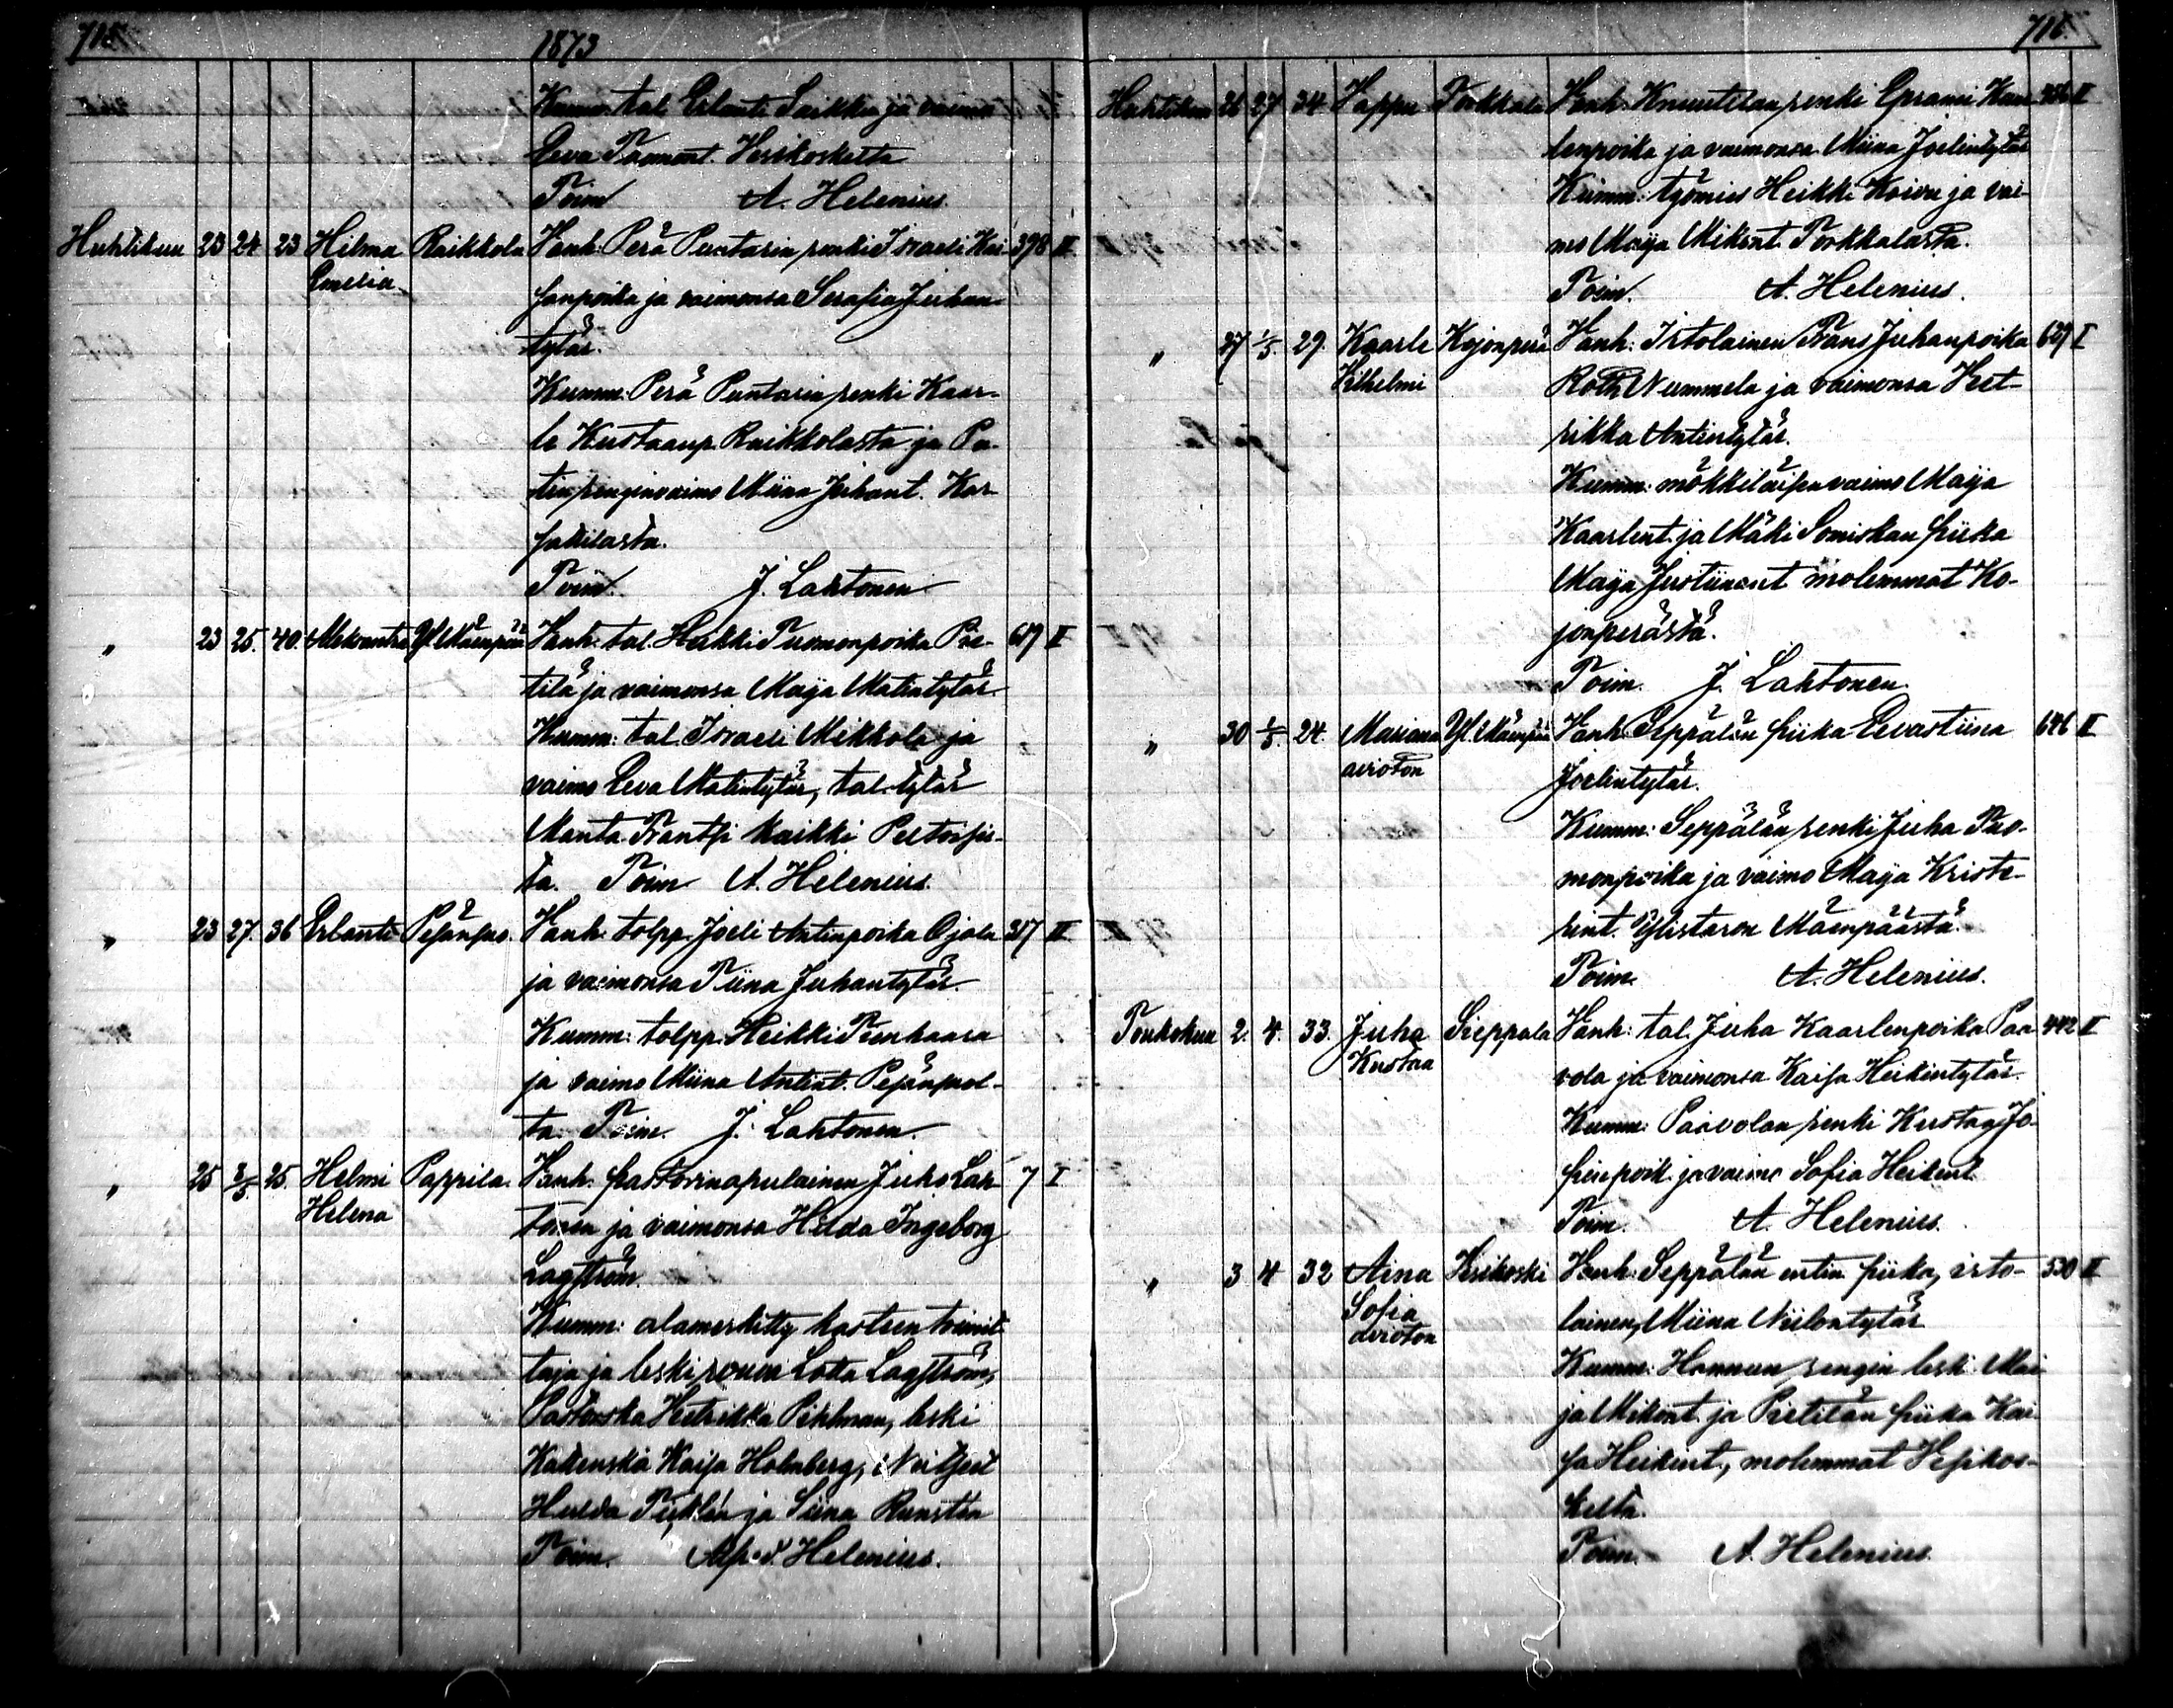 715
1873
Kumm: tal. Erlanti Saikku ja vaimo
Eeva Tuomont. Vesikoskelta
Toim A. Helenius.
Huhtikuu 23 24 23 Hilma Raikkola Vanh: Perä Puntarin renki Israeli Kai- 398 II
Emelia
sanpoika ja vaimonsa Serafia Juhan-
tytär.
Kumm: Perä Puntarin renki Kaar-
le Kustaanp. Raikkolasta ja Pa-
tin renginvaimo Miina Juhant. Kar-
sakilasta.
Toim. J. Lahtonen
" 23 25. 40. Aleksantra Yl. Mäenpää Vanh: tal. Heikki Tuomonpoika Pie- 619 II
tilä ja vaimonsa Maija Matintytär
Kumm: tal. Israeli Mikkola ja
vaimo Eeva Matintytär, tal. tytär
Manta Frantsi kaikki Peltoisis-
ta. Toim A. Helenius.
" 23 27. 36 Erlanti Pejänsuo. Vanh: tolpp. Joeli Antinpoika Ojala 317 II
ja vaimonsa Tiina Juhantytär.
Kumm: tolpp. Heikki Teenhaara
ja vaimo Miina Antint. Pejänsuol-
ta. Toim. J. Lahtonen.
" 25 2/5 25. Helmi Pappila. Vanh. pastorinapulainen Juho Lah- 7 I
Helena
tonen ja vaimonsa Hilda Ingeborg
Lagström.
Kumm: alamerkitty kasteen toimit-
taja ja leskirouva Lotta Lagström,
Pastorska Hetrikka Pihlman, leski
Kaija Holmberg, Neitseet
Hulda ja Siina
Toim. Alfr. Helenius.
716.
Huhtikuu 26 27 34 Seppu Torkkala Vanh: Knuutilan renki Eprami Kaar- II
lenpoika ja vaimonsa Miina Joelintytär
Kumm: työmies Heikki Koivu ja vai-
mo Maija Mikont. Torkkalasta.
Toim. A. Helenius.
" 27 1/5. 29. Kaarle Kojonperä Vanh: Irtolainen Frans Juhanpoika 629 I
Vilhelmi
Roth Nummela ja vaimonsa Het-
rikka Antintytär.
Kumm: mökkiläisen vaimo Maija
Kaarlent. ja Mäki Soniskan piika
Maija Justiinant molemmat Ko-
jonperästä.
Toim. J. Lahtonen.
" 30 1/5. 24. Mariana Yl. Mäenpää Vanh: Seppälän piika Eevastiina 646 II
avioton
Joelintytär.
Kumm: Seppälän renki Juha Tuo-
monpoika ja vaimo Maija Kriste-
rint. Ylistaron Mäenpäästä.
Toim. A. Helenius.
Toukokuu 2. 4. 33. Juha Sieppala Vanh: tal. Juha Kaarlenpoika Paa- 442 II
Kustaa
vola ja vaimonsa Kaisa Heikintytär.
Kumm: Paavolan renki Kustaa Jo-
sinpoik. ja vaimo Sofia Heikint.
Toim. A. Helenius.
" 3 4 32 Aina Vesikoski Vanh: Seppälän entin. piika, irto- 530 II
Sofia
avioton
lainen, Miina Niilontytär
Kumm: Hannun rengin leski Mai-
ja Mikont. ja Pietilän piika Kai-
sa Heikint., molemmat Vesikos-
kelta.
Toim. A. Helenius.